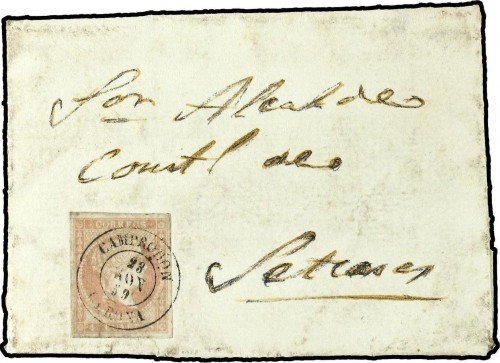 Sor Alcalde
Constl de
Setcases
CORREOS
CAMPRODON
23
NOV
59
GERONA